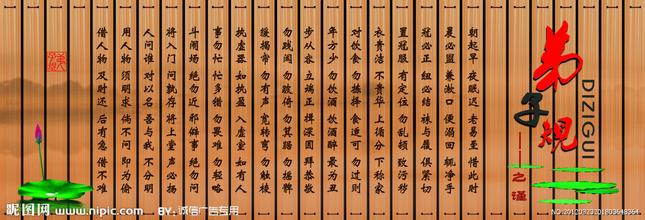 弟子规
DIIZIGUI
之谨
朝起早 夜眠迟 老易至 惜此时
晨必盥 兼漱口 便溺回 辄净手
冠必正 纽必结 袜与履 俱紧切
置冠服 有定位 勿乱顿 致污秽
衣贵洁 不贵华 上循分 下称家
对饮食 勿拣择 食适可 勿过则
年方少 勿饮酒 饮酒醉 最为丑
步从容 立端正 揖深圆 拜恭敬
勿践阈 勿跛倚 勿箕踞 勿摇髀
缓揭帘 勿有声 宽转弯 勿触棱
执虚器 如执盈 入虚室 如有人
事勿忙 忙多错 勿畏难 勿轻略
斗闹场 绝勿近 邪僻事 绝勿问
将入门 问孰存 将上堂 声必扬
人问谁 对以名 吾与我 不分明
用人物 须明求 倘不问 即为偷
借人物 及时还 后有急 借不难
昵图网 www.nipic.com
BY: 诚信广告专用